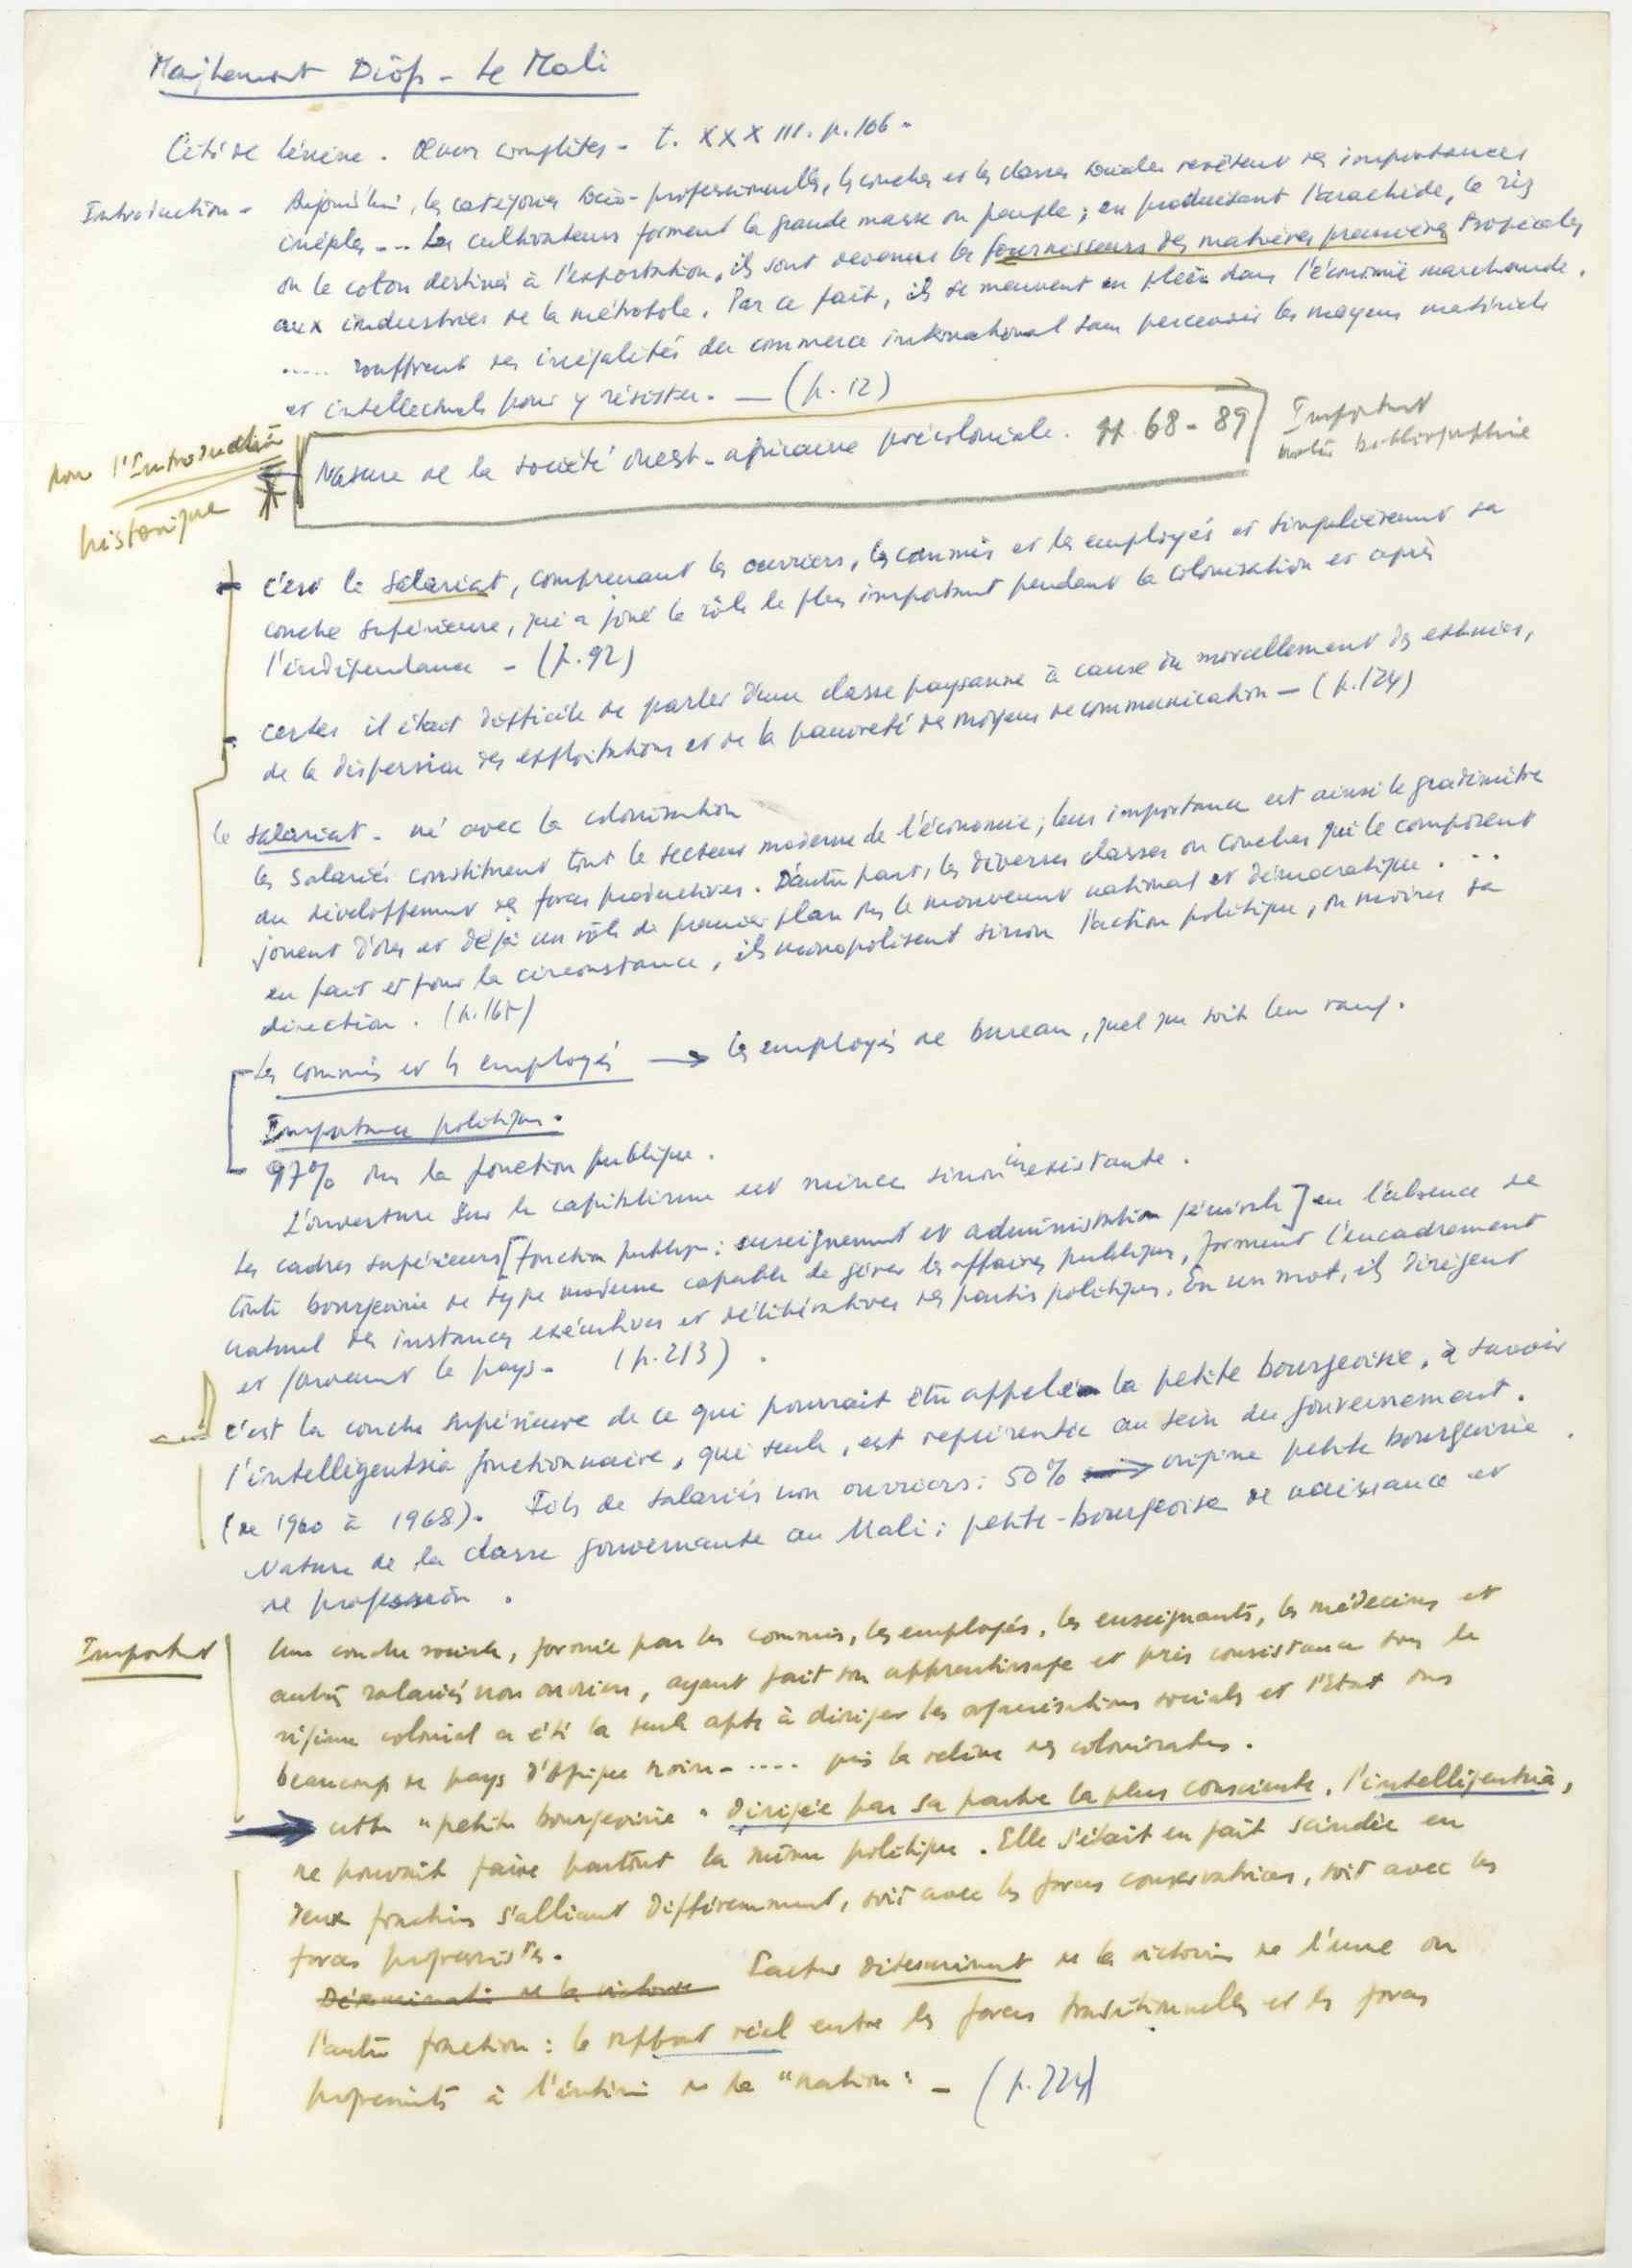 Majhemout Diôp - Le Mali
Cité de Lénine. Œuvres complètes - t. XXXIII. p. 106 -
Introduction - Aujourd'hui, les catégories socio-professionnelles, les couches et les classes sociales revêtent des importances
inégales --- Les cultivateurs forment la grande masse du peuple ; en produisant l'arachide, le riz
ou le coton destinés à l'exportation, ils sont devenus les fournisseurs des matières premières tropicales
aux industries de la métropole. Par ce fait, ils se meuvent en plein dans l'économie marchande.
..... souffrent des inégalités du commerce international sans percevoir les moyens matériels
et intellectuels pour y résister. — (p. 12)
pour l'Introduction
historique
Nature de la société ouest-africaine précoloniale. pp. 68 - 89
Important
notes bibliographie
- c'est le salariat, comprenant les ouvriers, les commis et les employés et singulièrement sa
couche supérieure, qui a joué le rôle le plus important pendant la colonisation et après
l'indépendance - (p. 92)
- certes il était difficile de parler d'une classe paysanne à cause du morcellement des ethnies,
de la dispersion des exploitations et de la pauvreté des moyens de communication — (p. 124)
le salariat - né avec la colonisation
les salariés constituent tout le secteur moderne de l'économie ; leur importance est ainsi le gradimètre
du développement des forces productives. D'autre part, les diverses classes ou couches qui le composent
jouent d'ores et déjà un rôle de premier plan ds le mouvement national et démocratique. ...
en fait et pour la circonstance, ils monopolisent sinon l'action politique, du moins sa
direction. (p. 165)
Les commis et les employés → les employés de bureau, quel que soit leur rang.
Importance politique.
97% ds la fonction publique.
L'ouverture sur le capitalisme est mince sinon inexistante.
Les cadres supérieurs [fonction publique : enseignement et administration générale] en l'absence de
toute bourgeoisie de type moderne capable de gérer les affaires publiques, forment l'encadrement
naturel des instances exécutives et délibératives des partis politiques. En un mot, ils dirigent
et gouvernent le pays - (p. 213).
c'est la couche supérieure de ce qui pourrait être appelé la petite bourgeoisie, à savoir
l'intelligentsia fonctionnaire, qui seule, est représentée au sein du gouvernement.
(de 1960 à 1968). Fils de salariés non ouvriers : 50% → origine petite bourgeoisie.
Nature de la classe gouvernante au Mali : petite-bourgeoise de naissance et
de profession.
Important
Une couche sociale, formée par les commis, les employés, les enseignants, les médecins et
autres salariés non ouvriers, ayant fait son apprentissage et pris consistance sous le
régime colonial a été la seule apte à diriger les organisations sociales et l'Etat dans
beaucoup de pays d'Afrique noire - ..... pris la relève des colonisateurs.
→ cette "petite bourgeoisie" dirigée par sa partie la plus consciente, l'intelligentsia,
ne pouvait faire partout la même politique. Elle s'était en fait scindée en
deux fractions s'alliant différemment, soit avec les forces conservatrices, soit avec les
forces progressistes.
Facteur déterminant de la victoire de l'une ou
l'autre fraction : le rapport réel entre les forces traditionnelles et les forces
progressistes à l'intérieur de la "nation" - (p. 224)